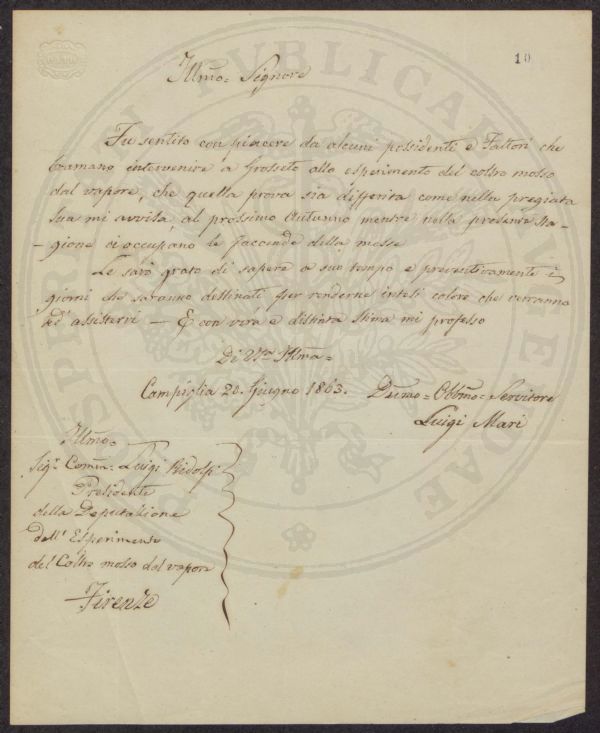 10
Illmo= Signore
Fu sentito con piacere da alcuni possidenti e Fattori che
bramano intervenire a Grosseto allo esperimento del coltro mosso
dal vapore, che quella prova sia differita come nella pregiata
sua mi avvisa, al prossimo Autunno mentre nella presente sta-
-gione ci occupano le faccende della messe
Le sarò grato di sapere a suo tempo e preventivamente i
giorni che saranno destinati per renderne intesi coloro che verranno
ad assistervi — E con viva e distinta stima mi professo
Di Illma=
Campiglia 20. Giugno 1863. Devmo= Obbmo= Servitore
Luigi Mari
Illmo=
Sigr Comm: Luigi Ridolfi
Presidente
della Deputazione
dell' Esperimento
del Coltro mosso dal vapore
Firenze